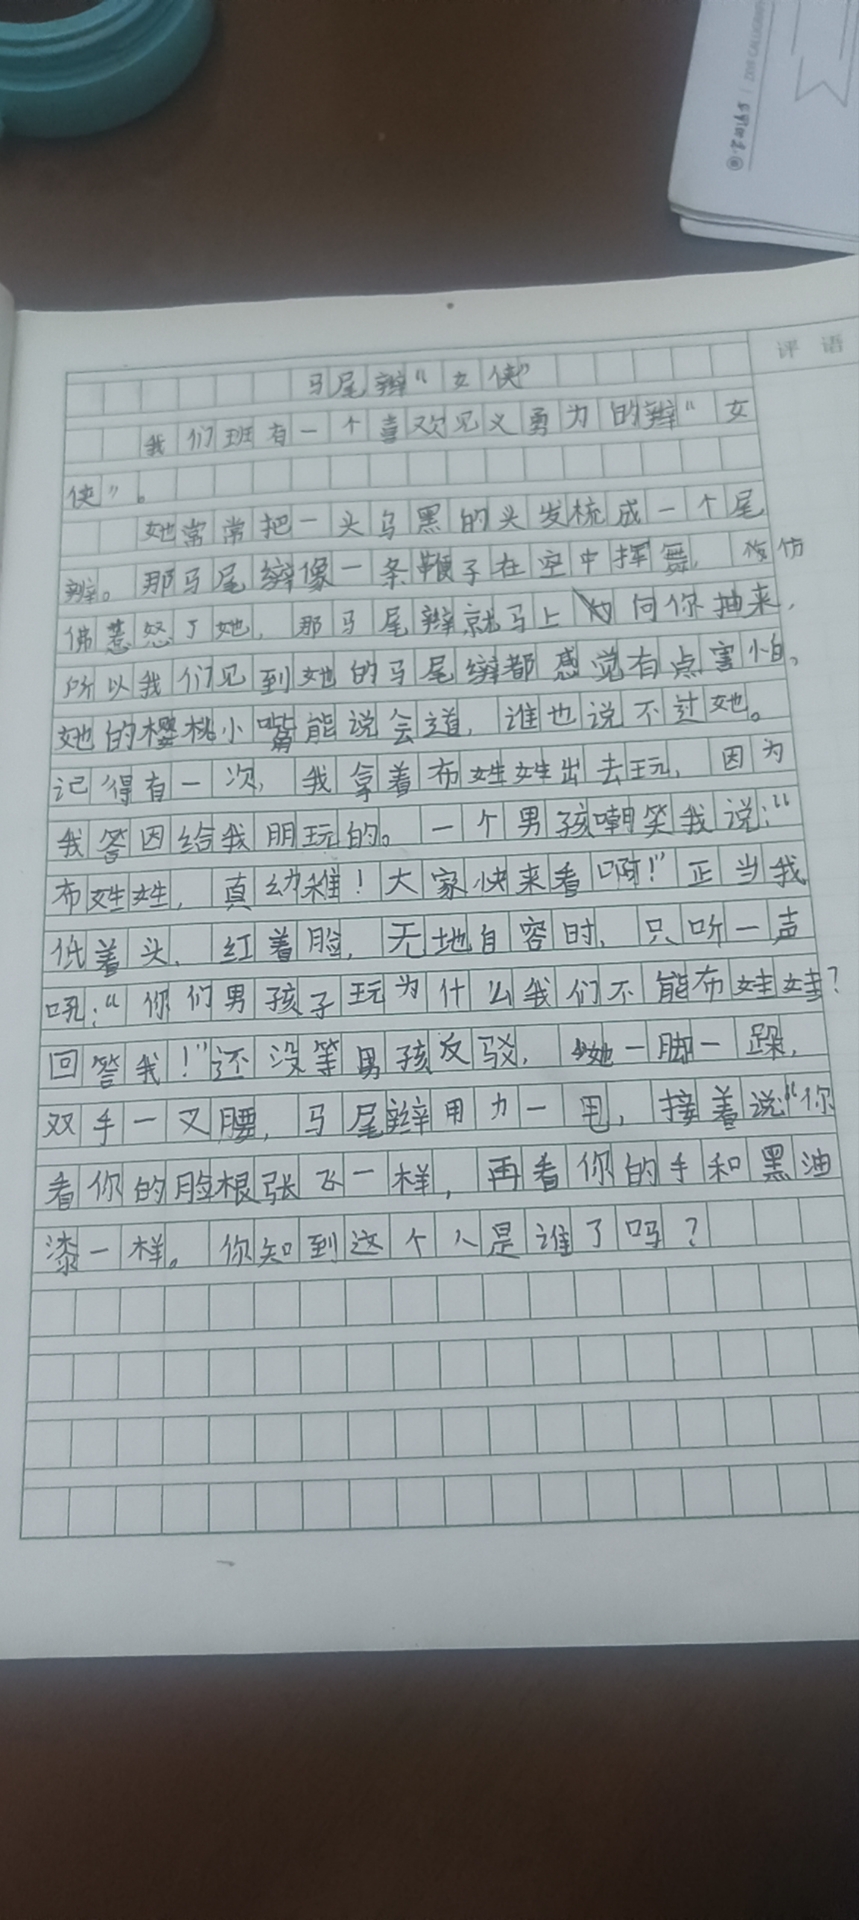 评 语
马尾辫“女侠”
我们班有一个喜欢见义勇为的辫“女
侠”。
她常常把一头乌黑的头发梳成一个尾
辫。那马尾辫像一条鞭子在空中挥舞，仿
佛惹怒了她，那马尾辫就马上向你抽来，
所以我们见到她的马尾辫都感觉有点害怕。
她的樱桃小嘴能说会道，谁也说不过她。
记得有一次，我拿着布娃娃出去玩，因为
我答因给我朋玩的。一个男孩嘲笑我说：“
布娃娃，真幼稚！大家快来看啊！”正当我
低着头，红着脸，无地自容时，只听一声
吼：“你们男孩子玩为什么我们不能布娃娃？
回答我！”还没等男孩反驳，她一脚一跺，
双手一叉腰，马尾辫用力一甩，接着说“你
看你的脸根张飞一样，再看你的手和黑油
漆一样。你知到这个人是谁了吗？